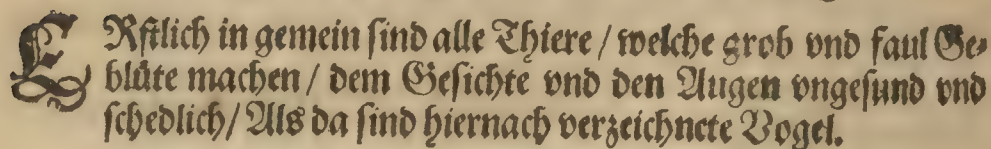 ERſtlich in gemein ſind alle Thiere / welche grob vnd faul Ge⸗
blüte machen / dem Geſichte vnd den Augen vngeſund vnd
ſchedlich / Als da ſind hiernach verzeichnete Vogel.